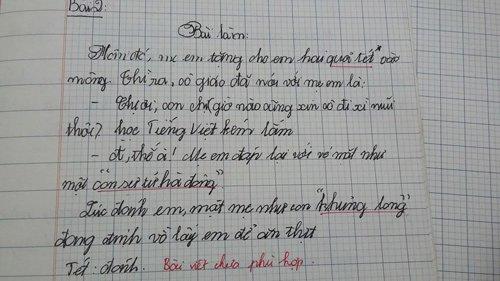 Bài 2:
Bài làm:
Hôm đó, mẹ em tặng cho em hai quả tét vào
mông. Thì ra, cô giáo đã nói với mẹ em là:
- Chị ơi, con chị giờ nào cũng xin cô đi xì mũi
thôi? học Tiếng Việt kém lắm
- Ờ, thế à! Mẹ em đáp lại với vẻ mặt như
một "con sư tử hà đông".
Lúc đánh em, mặt mẹ như con "khủng long"
đang định vồ lấy em để ăn thịt
Tét: đánh. Bài viết chưa phù hợp.